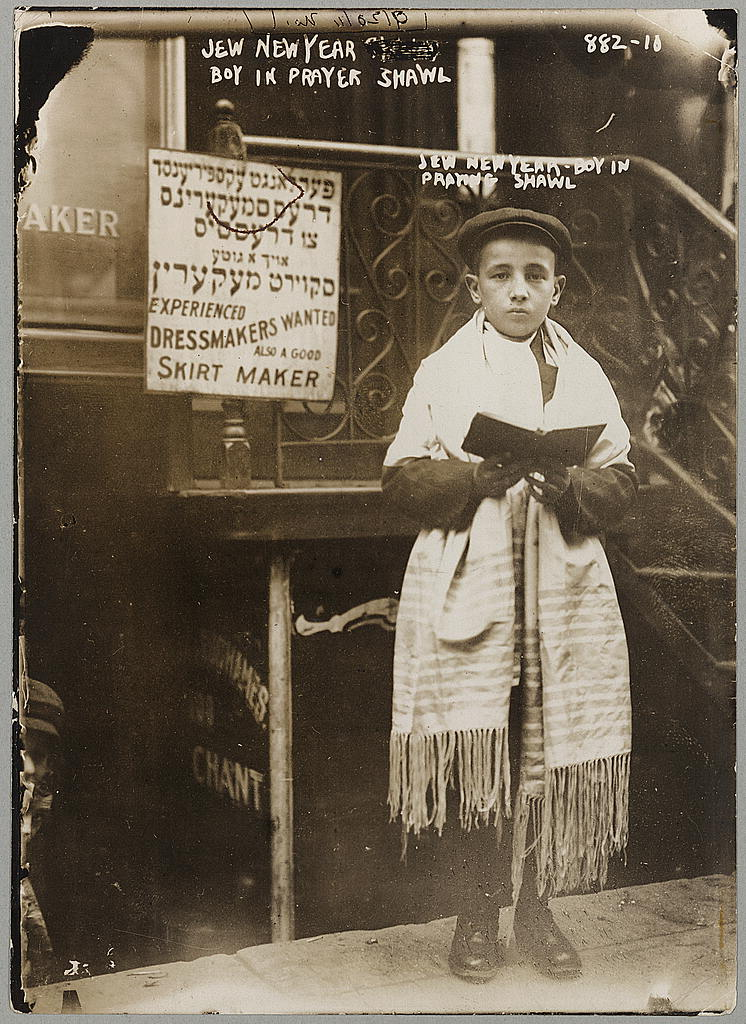 JEW NEW YEAR
BOY IN PRAYER SHAWL
882-10
JEW NEW YEAR - BOY IN
PRAYING SHAWL
AKER
פערלאנגט עקספיריענסד
דרעססמעקערינס
צו דרעססיס
אויך א גוטע
סקוירט מעקערין
EXPERIENCED
DRESSMAKERS WANTED
ALSO A GOOD
SKIRT MAKER
CHANT